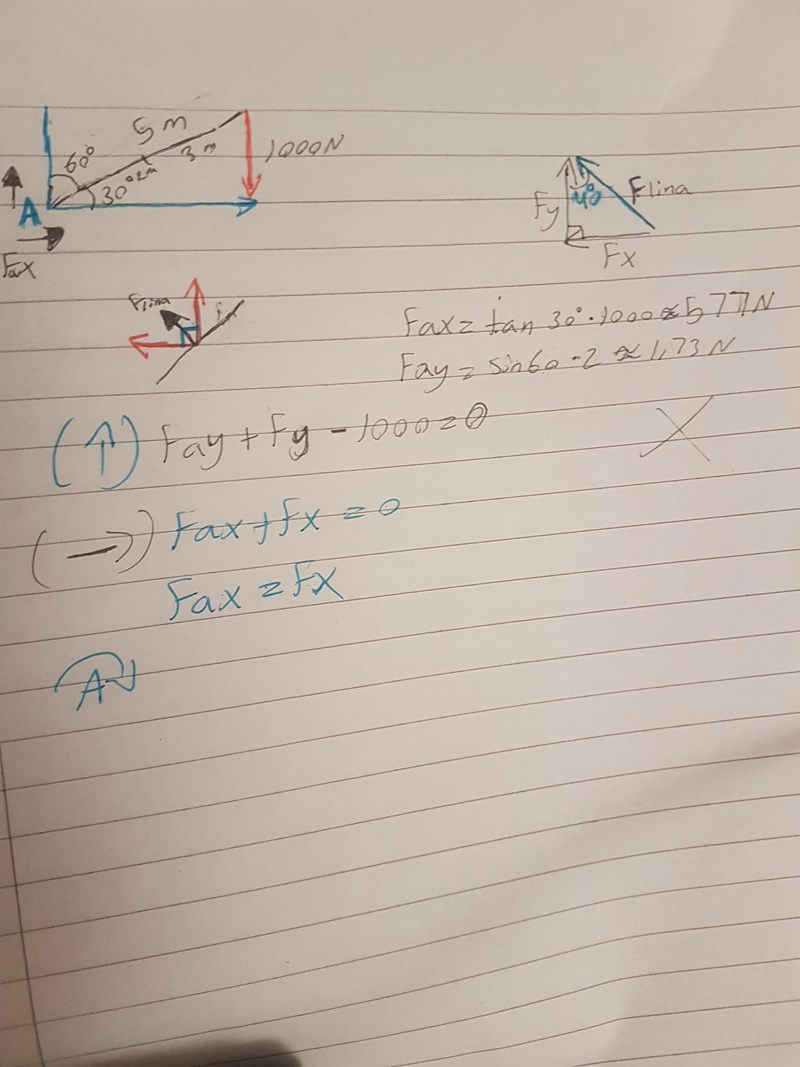 5m
60°
3m
1000N
2m
30°
A
Fax
Fy
Flina
Fx
Flina
Fax = tan 30° · 1000 ≈ 5,77N
Fay = sin60 · 2 ≈ 1,73N
(↑) Fay + Fy - 1000 = 0
X
(→) Fax + Fx = 0
Fax = Fx
A